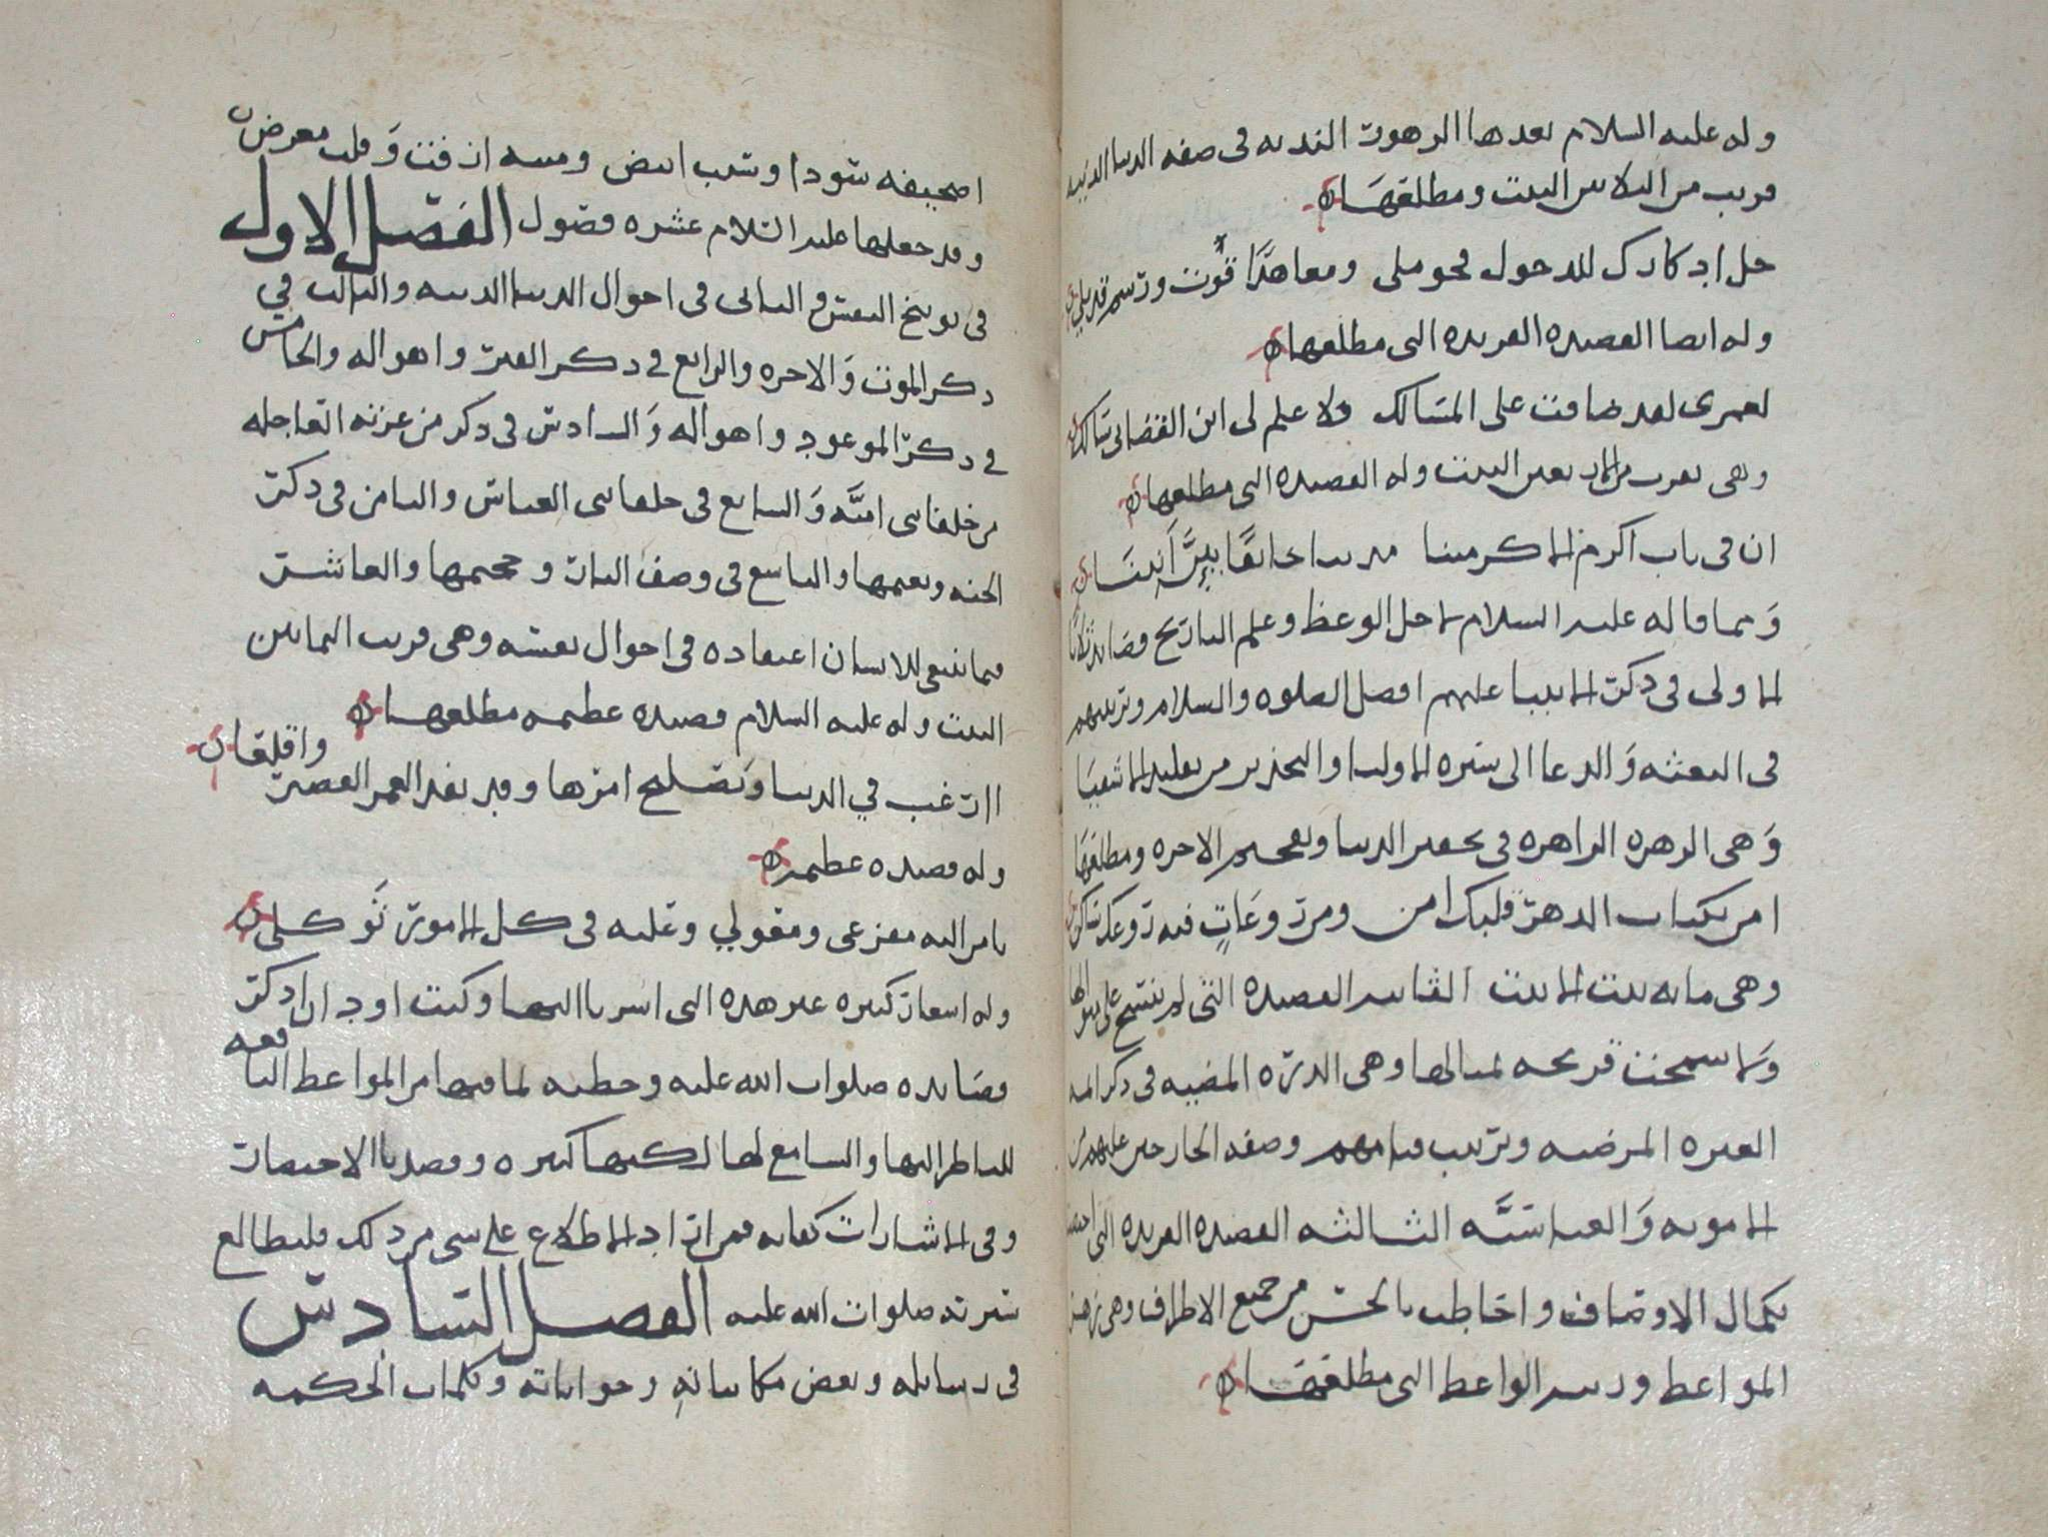 وله عليه السلام بعدها الزهور النديه في صفه الدنيا الدنيه
قريب من الثلاثين البيت ومطلعها
خل ادكارك للدخول فحومل ومعاهدًا قوت ورسم قد بلي
وله ايضا القصيده الفريده التي مطلعها
لعمري لقد ضاقت علي المسالك ولا علم لي اين القضا بي سالك
وهي تقرب من الاربعين البيت وله القصيده التي مطلعها
ان في باب اكرم الاكرمينا
وَمما قاله عليه السلام لاجل الوعظ وعلم التاريخ قصايد ثلاثا
الاولى في ذكر الانبيا عليهم افضل الصلوه والسلام وترتيبهم
في البعثه وَالدعا الى سيره الاوليا والتحذير من تقليد الاشقيا
وَهي الزهره الزاهره في تحقير الدنيا وتفخيم الاخره ومطلعها
امن نكبات الدهر قلبك امن ومن روعَاتٍ فيه روعك ساكن
وهي مايه بيت الا بيت الثانيه القصيده التي لم ينسج على منوالها
وَلا سمحت قريحه بمثالها وهي الدره المضيه في ذكر ائمه
العتره المرضيه وترتيب قيامهم وصفه الخارجين عليهم من
الامويه وَالعباسيَّه الثالثه القصيده الفريده التي
بكمال الاوصاف واحاطت بالحسن من جميع الاطراف وهي
المواعظ وزينه الواعظ التي مطلعها
اصحيفه سودا وشيب ابيض ومنيه ازفت وَقلب معرض
وقد جعلها عليه السلام عشره فصول الفصل الاول
في توبيخ النفس والثاني في احوال الدنيا الدنيه والثالث في
ذكر الموت وَالاخره والرابع في ذكر القبر واهواله والخامس
في ذكر الموعود واهواله وَالسادس في ذكر من غرته العاجله
من خلفا بني اميَّه وَالسابع في خلفا بني العباس والثامن في ذكر
الجنه ونعيمها والتاسع في وصف النار وجحيمها والعاشر
فيما ينبغي للانسان اعتماده في احوال نفسه وهي قريب الثمانين
البيت وله عليه السلام قصيده عظيمه مطلعها
اارغب في الدنيا وَتصليح امرها وقد نفد العمر القصير
واقلقا
وله قصيده عظيمه
يا من اليه مفزعي ومعولي وعليه في كل الامور توكلي
وله اشعار كثيره غير هذه التي اشرنا اليها وكنت اود ان اذكر
قصايده صلوات الله عليه وخطبه لما فيها من المواعظ النافعه
للناظر اليها والسامع لها لكنها كثيره وقصدنا الاختصار
وفي الاشارات كفايه فمن اراد الاطلاع على شي من ذلك فليطالع
سيرته صلوات الله عليه الفصل السادس
في رسايله وبعض مكاتباته وجواباته وكلمات الحكمه